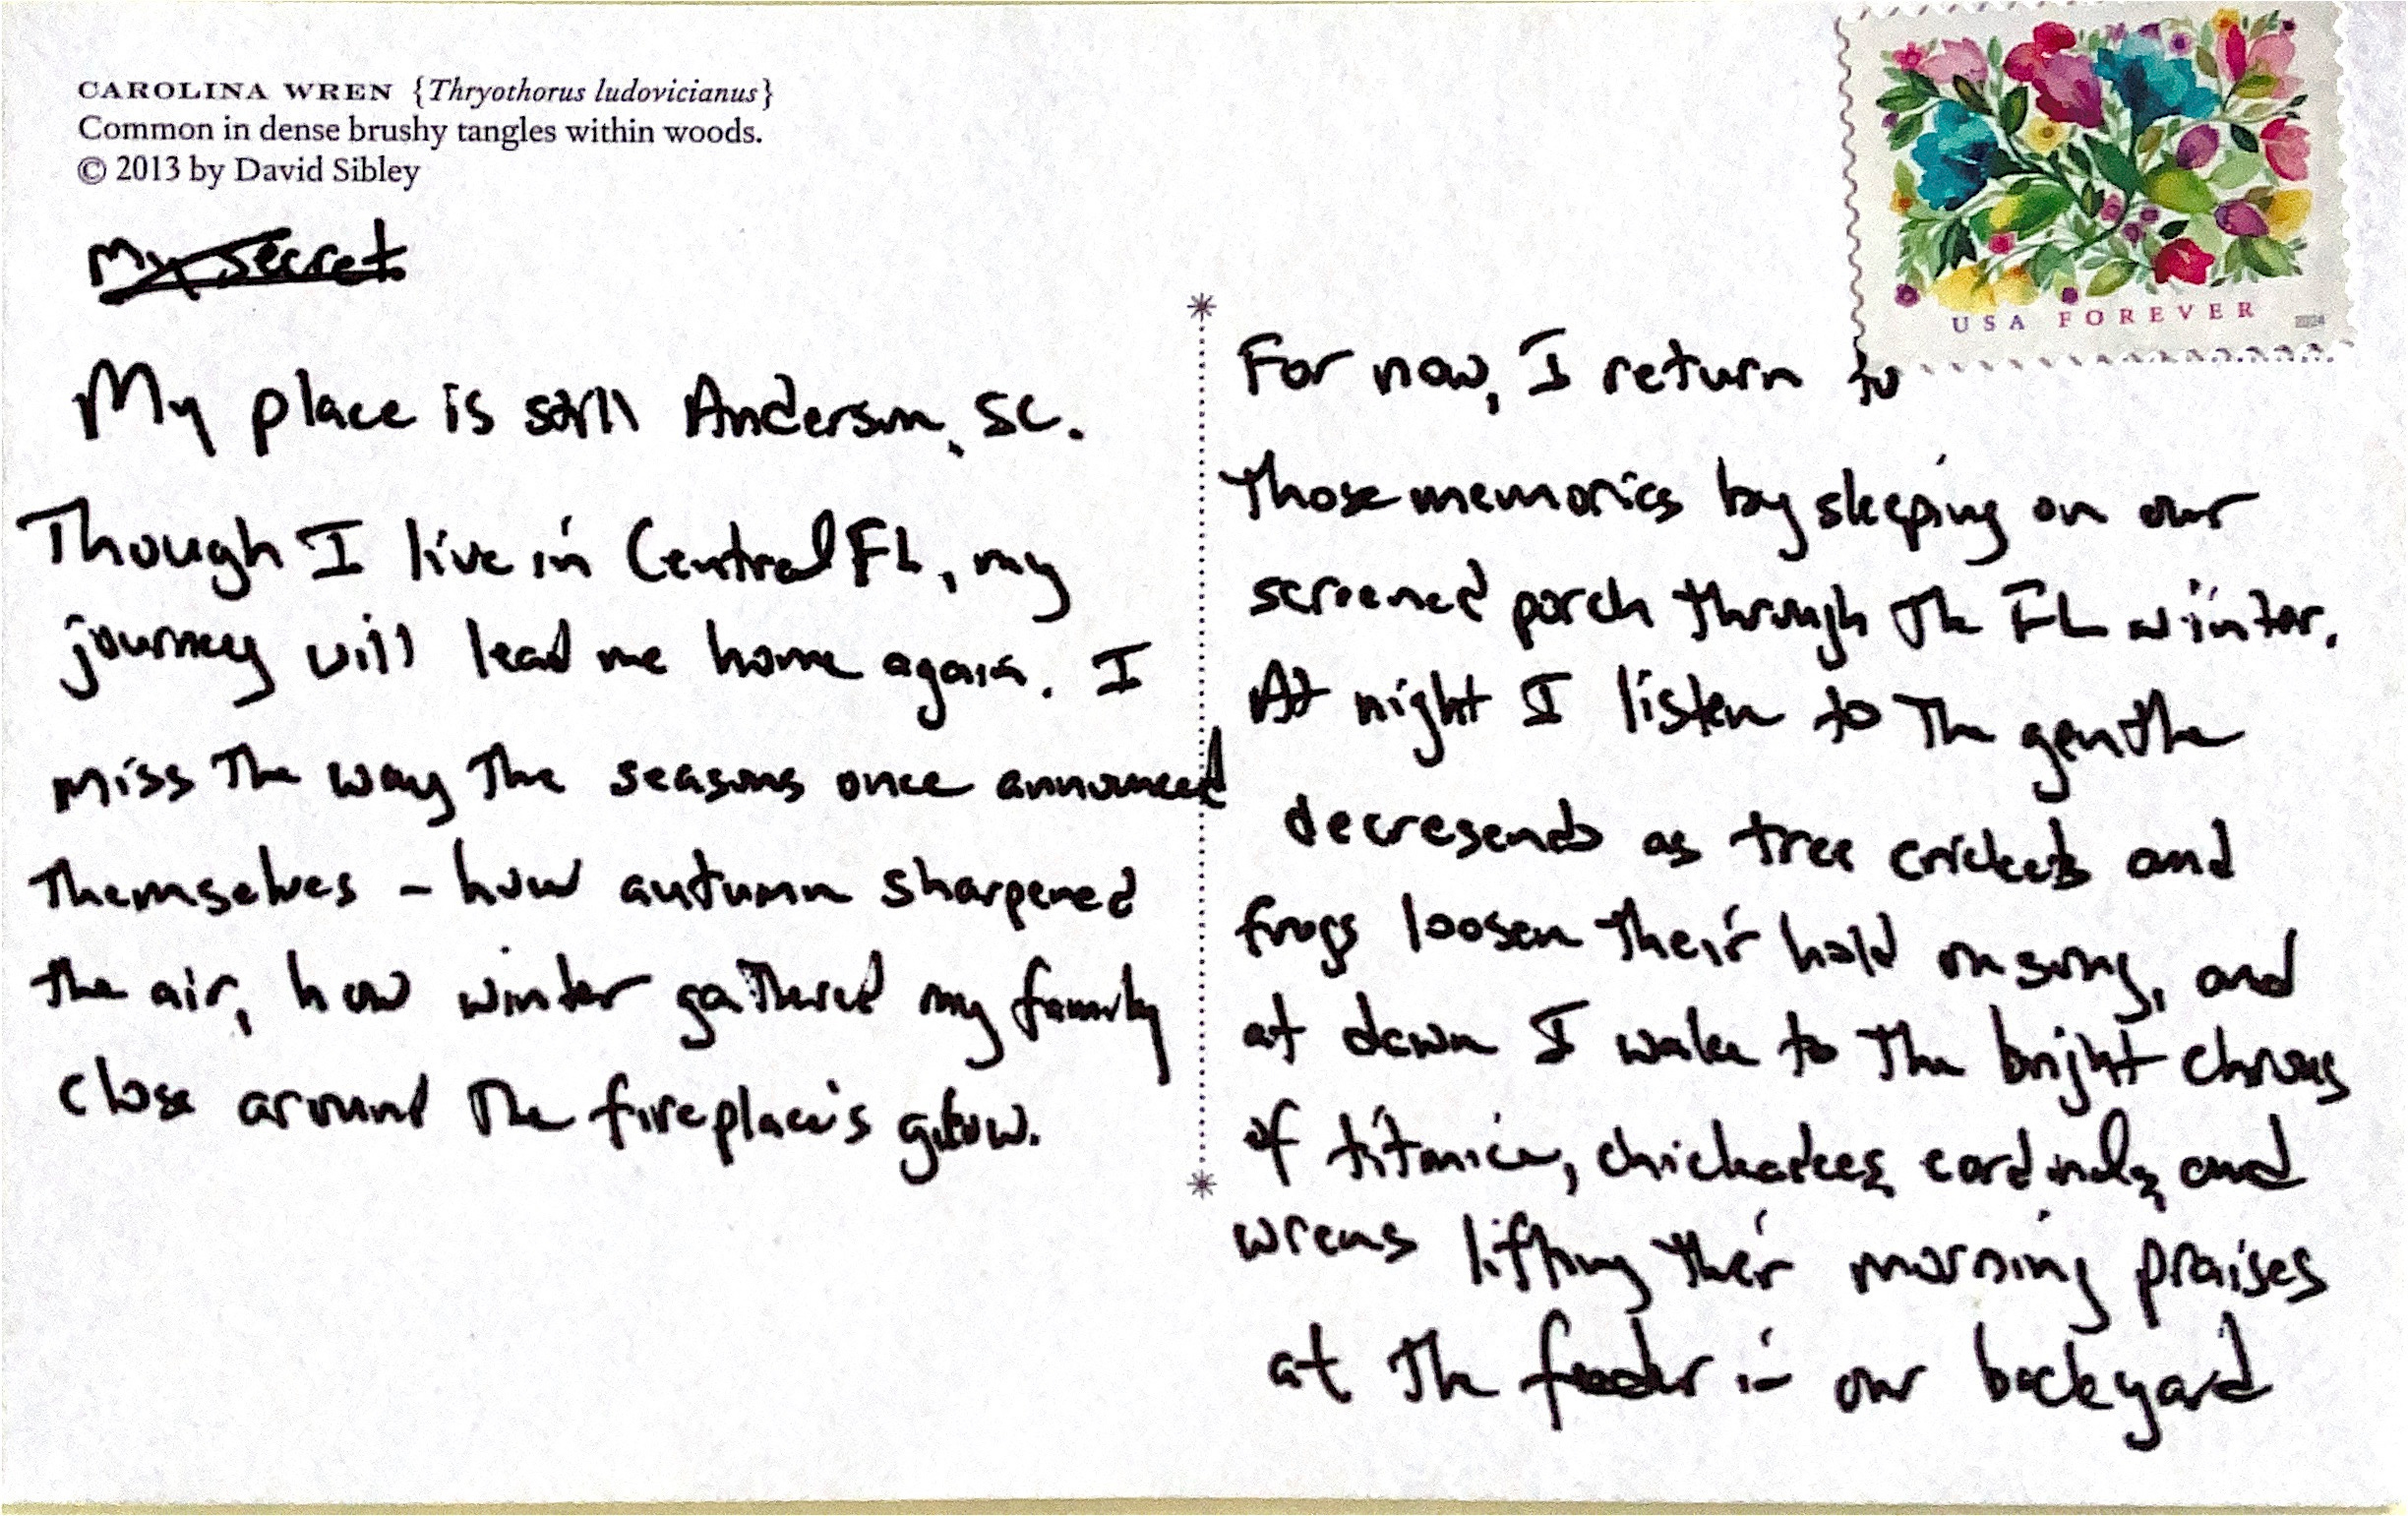 CAROLINA WREN {Thryothorus ludovicianus}
Common in dense brushy tangles within woods.
© 2013 by David Sibley
My Secret
My place is still Anderson, SC.
Though I live in Central FL, my
journey will lead me home again. I
miss the way the seasons once announced
themselves – how autumn sharpened
the air, how winter gathered my family
close around the fireplace's glow.
USA FOREVER
2024
For now, I return to
those memories by sleeping on our
screened porch through the FL winter.
At night I listen to the gentle
decresendo as tree crickets and
frogs loosen their hold on song, and
at dawn I wake to the bright chorus
of titmice, chickadees, cardinals, and
wrens lifting their morning praises
at the feeder in our backyard